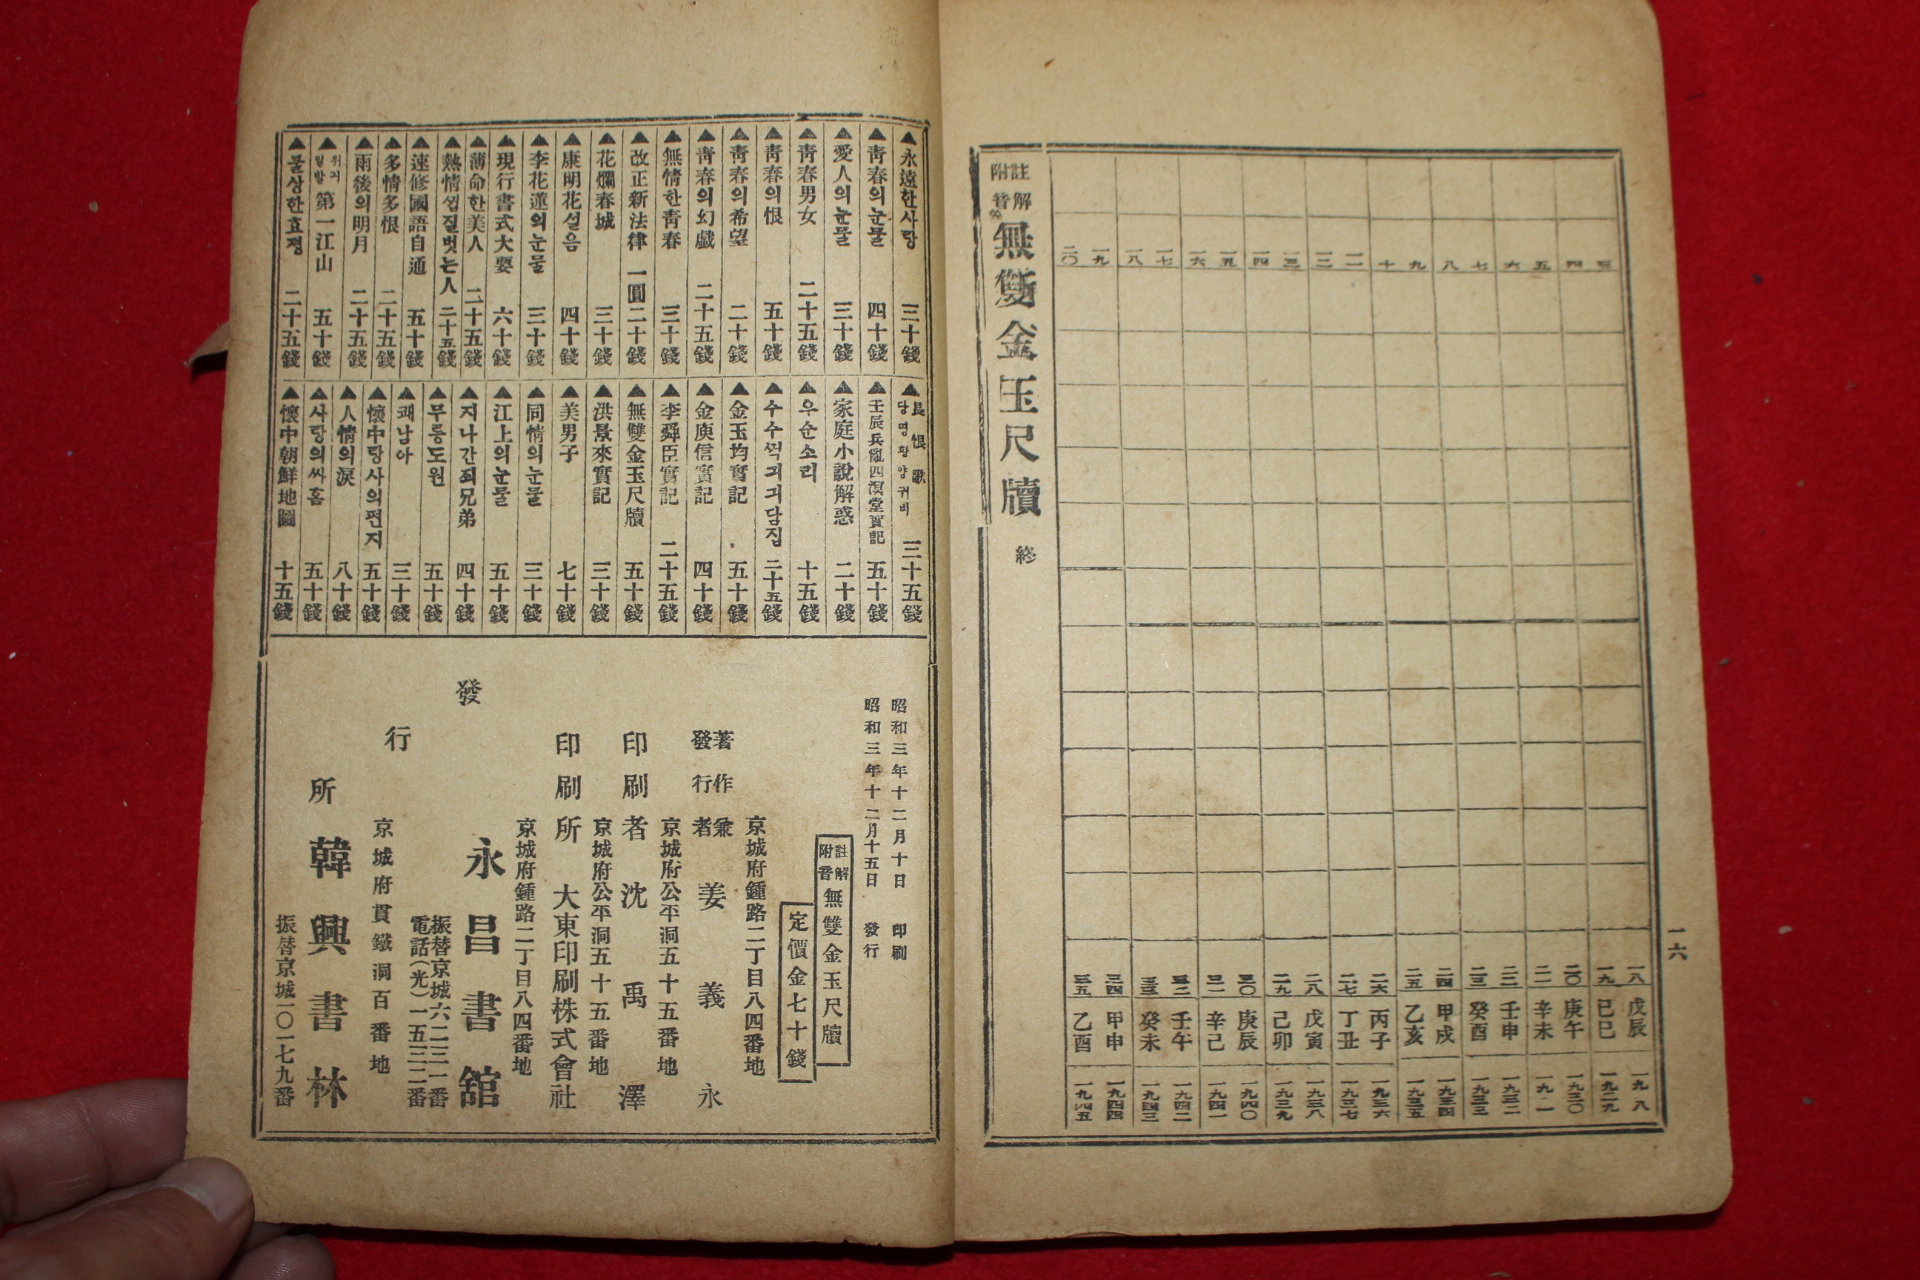 一六
三
四
五
六
七
八
九
十
一一
一二
一三
一四
一五
一六
一七
一八
一九
二〇
一八 戊辰
一九 己巳 一九二九
二〇 庚午 一九三〇
二一 辛未
二二 壬申 一九三二
二三 癸酉 一九三三
二四 甲戌 一九三四
二五 乙亥 一九三五
二六 丙子 一九三六
二七 丁丑 一九三七
二八 戊寅 一九三八
二九 己卯 一九三九
三〇 庚辰 一九四〇
三一 辛巳 一九四一
三二 壬午 一九四二
三三 癸未 一九四三
三四 甲申 一九四四
三五 乙酉 一九四五
註解附音 無雙金玉尺牘 終
▲永遠한사랑 三十錢
▲靑春의눈물 四十錢
▲愛人의눈물 三十錢
▲靑春男女 二十五錢
▲靑春의恨 五十錢
▲靑春의希望 二十錢
▲靑春의幻戱 二十五錢
▲無情한靑春 三十錢
▲改正新法律 一圓二十錢
▲花爛春城 三十錢
▲康明花설음 四十錢
▲李花蓮의눈물 三十錢
▲現行書式大要 六十錢
▲薄命한美人 二十五錢
▲熱情썹질벗는人 二十五錢
▲速修國語自通 五十錢
▲多情多恨 二十五錢
▲雨後의明月 二十五錢
▲第一江山 五十錢
▲불상한효졍 二十五錢
▲長恨歌 당명황양귀비 三十五錢
▲壬辰兵亂四溟堂實記 五十錢
▲家庭小說解惑 二十錢
▲우순소리 十五錢
▲수수꺽긔긔담집 二十五錢
▲金玉均實記 五十錢
▲金庾信實記 四十錢
▲李舜臣實記 二十五錢
▲無雙金玉尺牘 五十錢
▲洪景來實記 三十錢
▲美男子 七十錢
▲同情의눈물 三十錢
▲江上의눈물 五十錢
▲지나간죄兄弟 四十錢
▲무릉도원 五十錢
▲쾌남아 三十錢
▲懷中랑사의편지 五十錢
▲人情의淚 八十錢
▲사랑의싸홈 五十錢
▲懷中朝鮮地圖 十五錢
昭和三年十二月十日 印刷
昭和三年十二月十五日 發行
註解附音 無雙金玉尺牘
定價金七十錢
京城府鍾路二丁目八四番地
著作兼發行者 姜義永
京城府公平洞五十五番地
印刷者 沈禹澤
京城府公平洞五十五番地
印刷所 大東印刷株式會社
京城府鍾路二丁目八四番地
發行所
永昌書館
振替京城六二三一番
電話(光)一五三二番
京城府貫鐵洞百番地
韓興書林
振替京城一〇一七九番